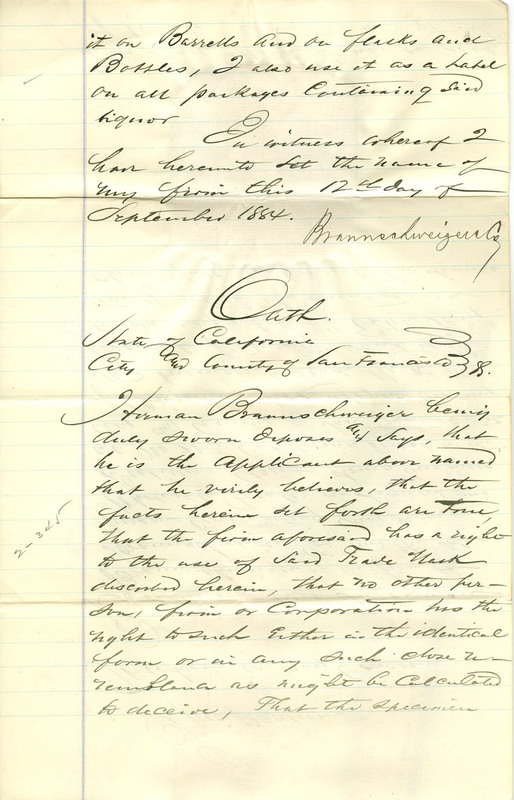 it on Barrells and on flasks and
Bottles, I also use it as a Label
on all packages Containing Said
liquor
In witness whereof I
have hereunto Set the name of
my firm this 12th day of
September 1884.
Braunschweiger & Co
Oath.
State of California
City and County of San Francisco } SS.
Herman Braunschweiger being
duly Sworn deposes and Says, that
he is the Applicant above named
that he virily believes, that the
facts herein set forth are true,
that the firm aforesaid has a right
to the use of Said Trade Mark
discribed herein, that no other per-
son, firm or Corporation has the
right to such Either in the identical
form or in any such close re-
semblance as might be Calculated
to deceive, That the specimen
2-345